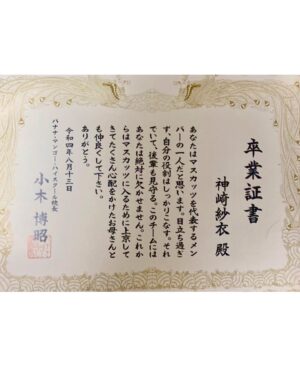 卒業証書
神崎紗衣 殿
あなたはマスカッツを代表するメン
バーの一人だと思います。目立ち過ぎ
ず、自分の役割はしっかりこなす。それ
でいて、後輩も見守る。このチームには
あなたは絶対に欠かせません。これか
らはマスカッツに入るために上京して
きてたくさん心配をかけたお母さんと
も仲良くして下さい。
ありがとう。
令和四年八月十三日
バナナ・マンゴー・ハイスクール校長
小木 博昭